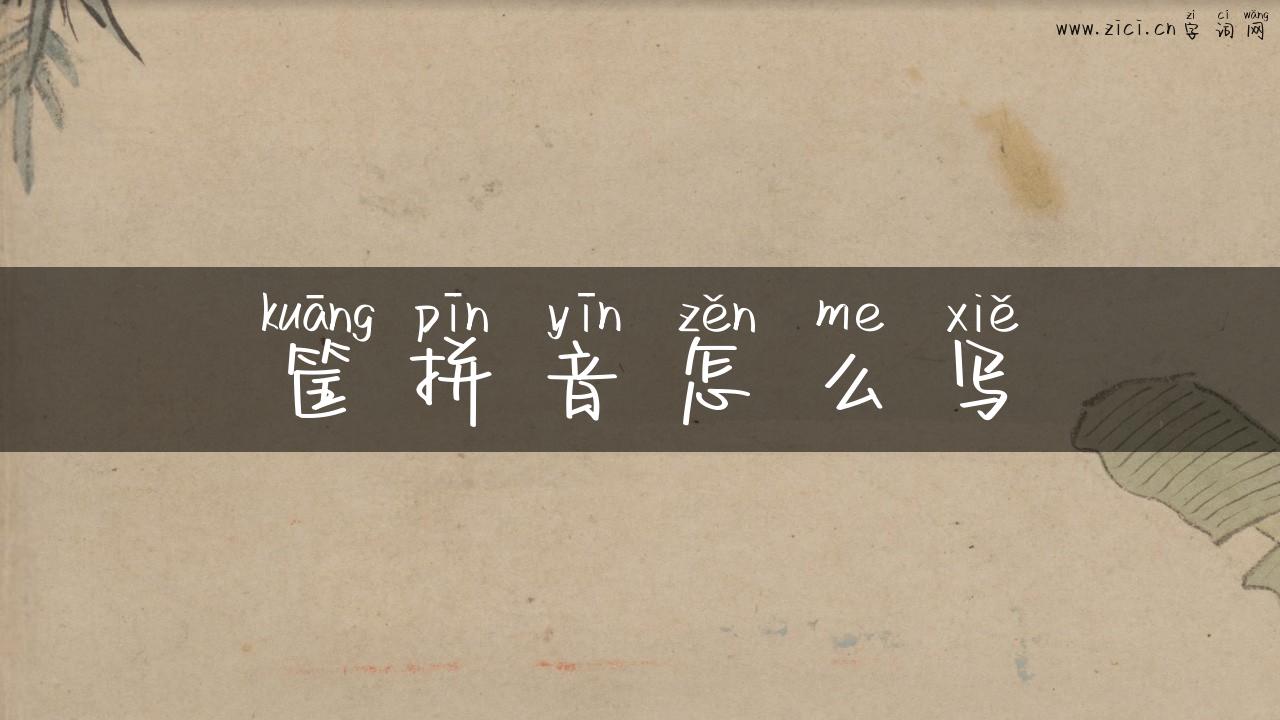 zì cí wǎng
www.zici.cn 字词网
kuāng pīn yīn zěn me xiě
筐拼音怎么写